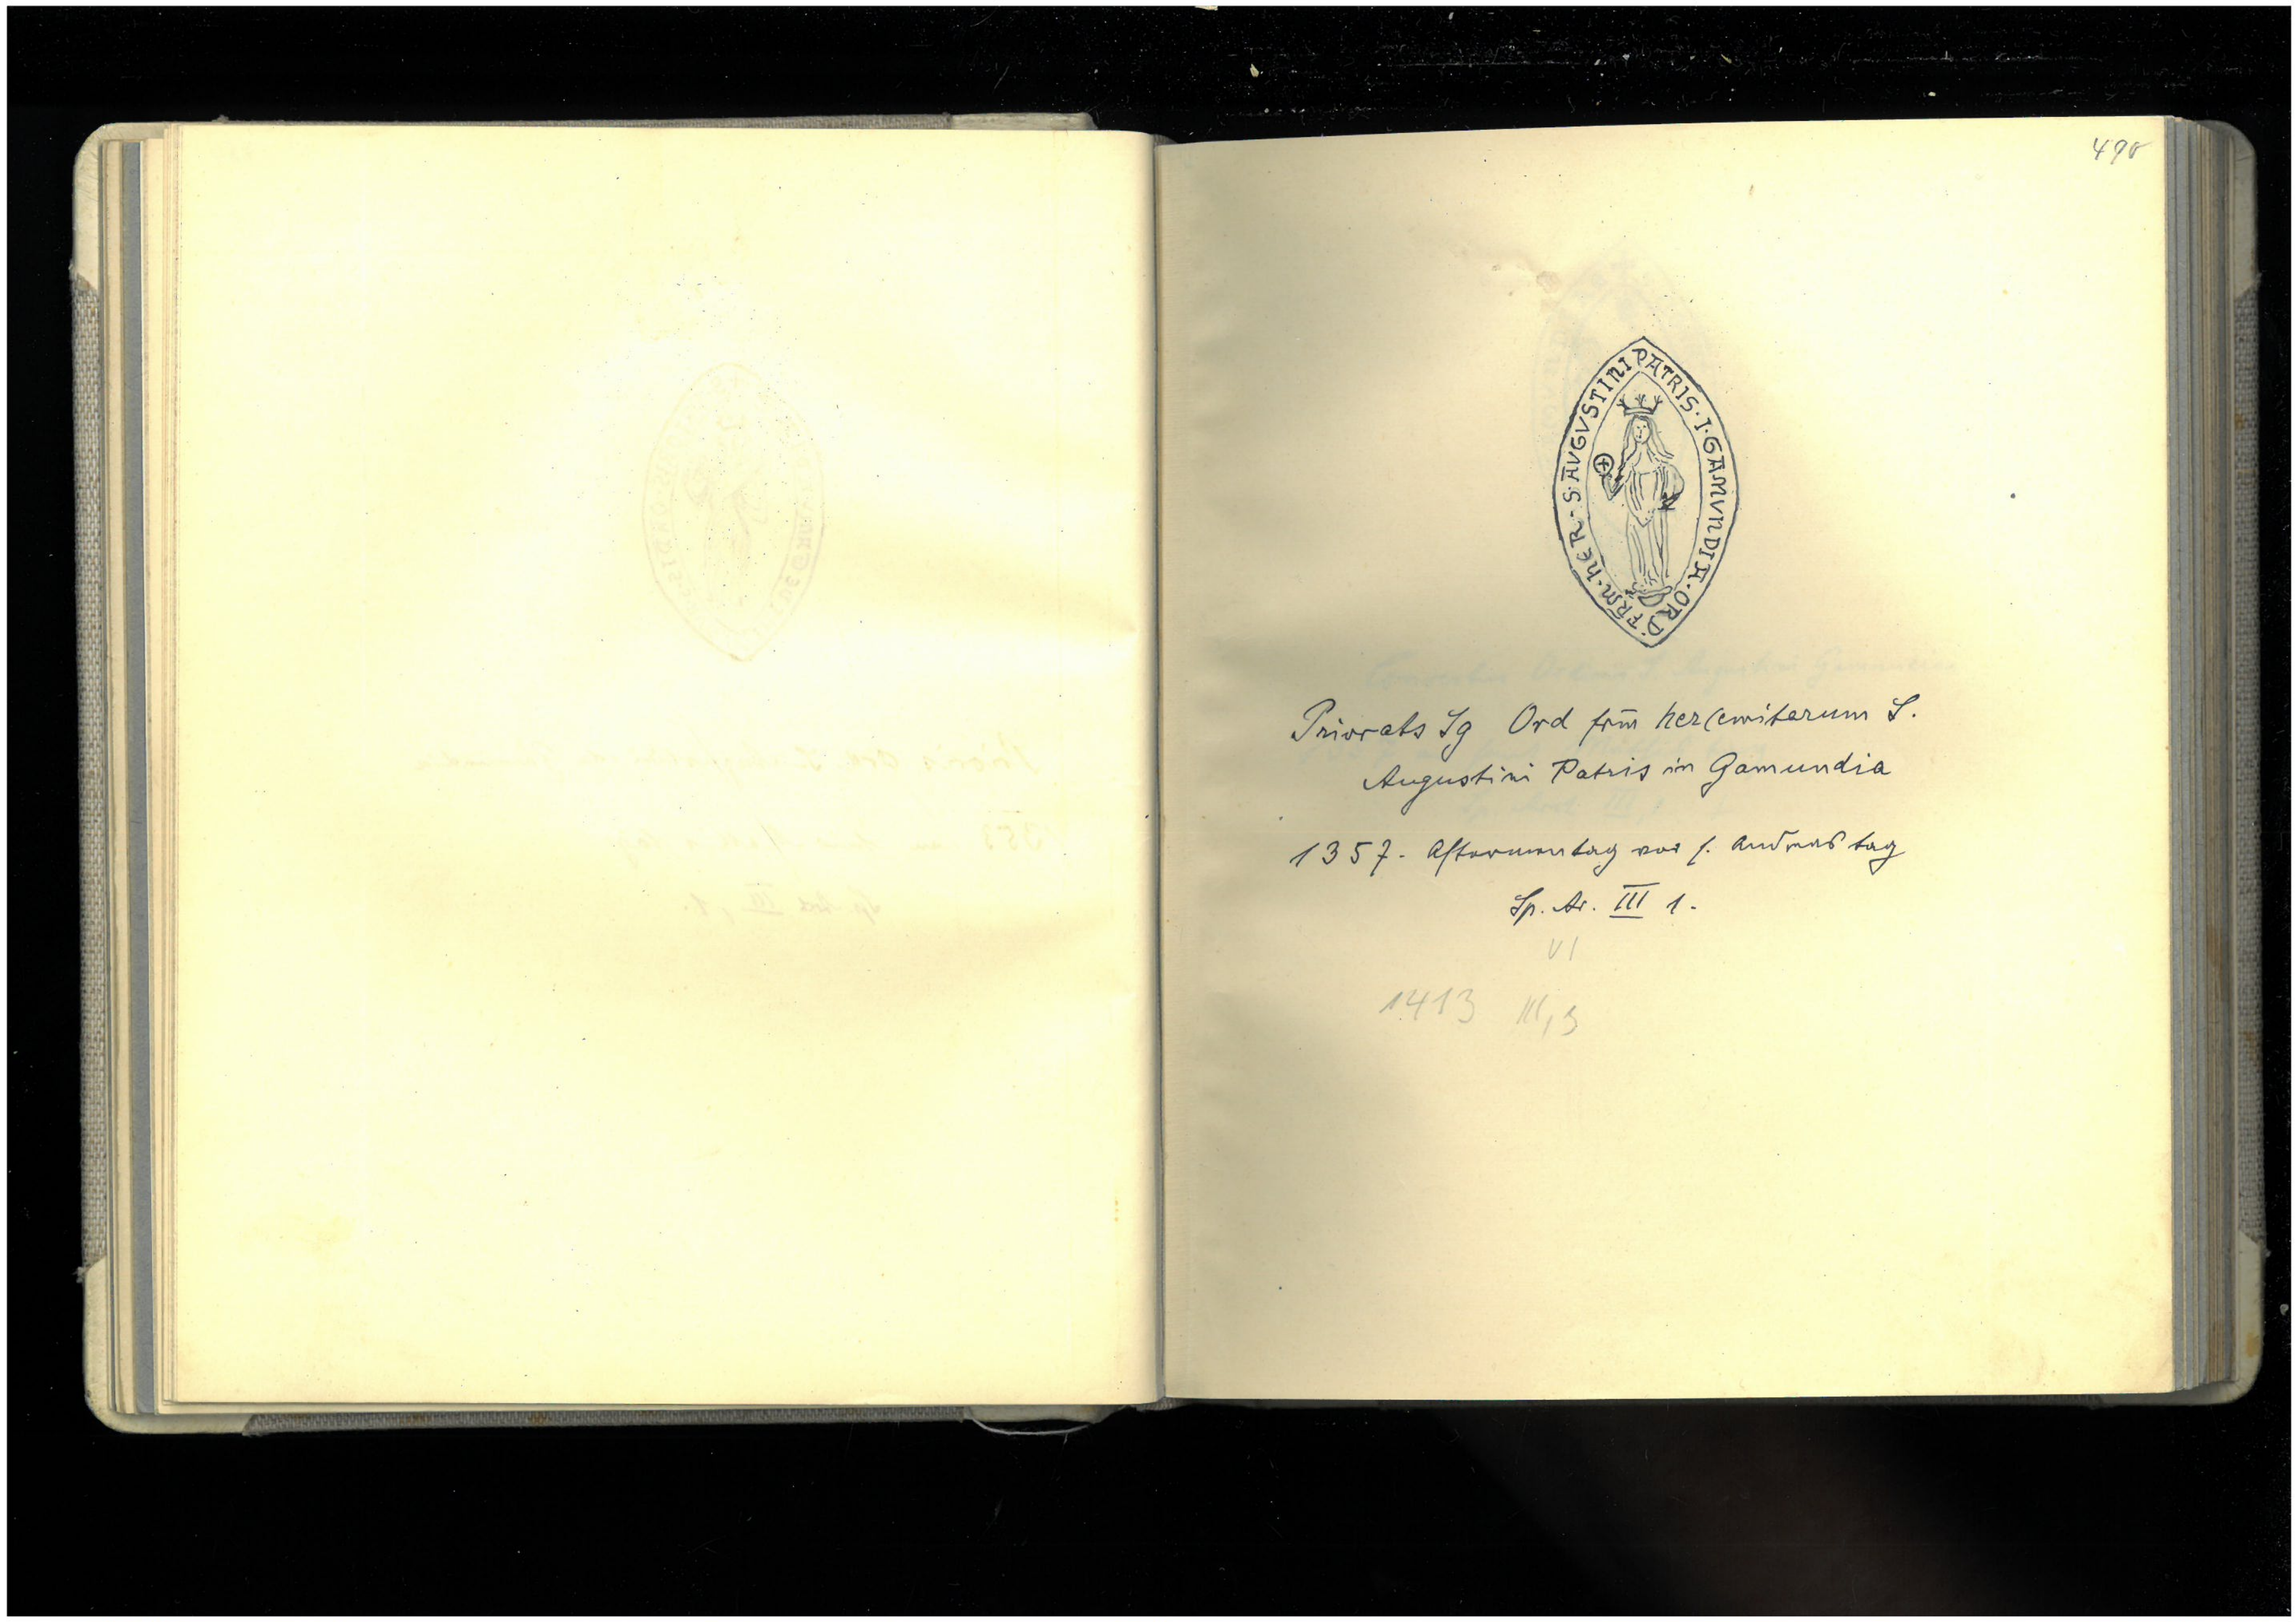 490
PATRIS · I · GAMVNDIA · ORD · FRM · hER · S · AVGVSTINI
Priorats Sg Ord frm̄ her(emitarum S.
Augustini Patris in Gamundia
1357. Aftermontag vor s. Andreas tag
Sp. Ar. III 1.
VI
1413 III, 3